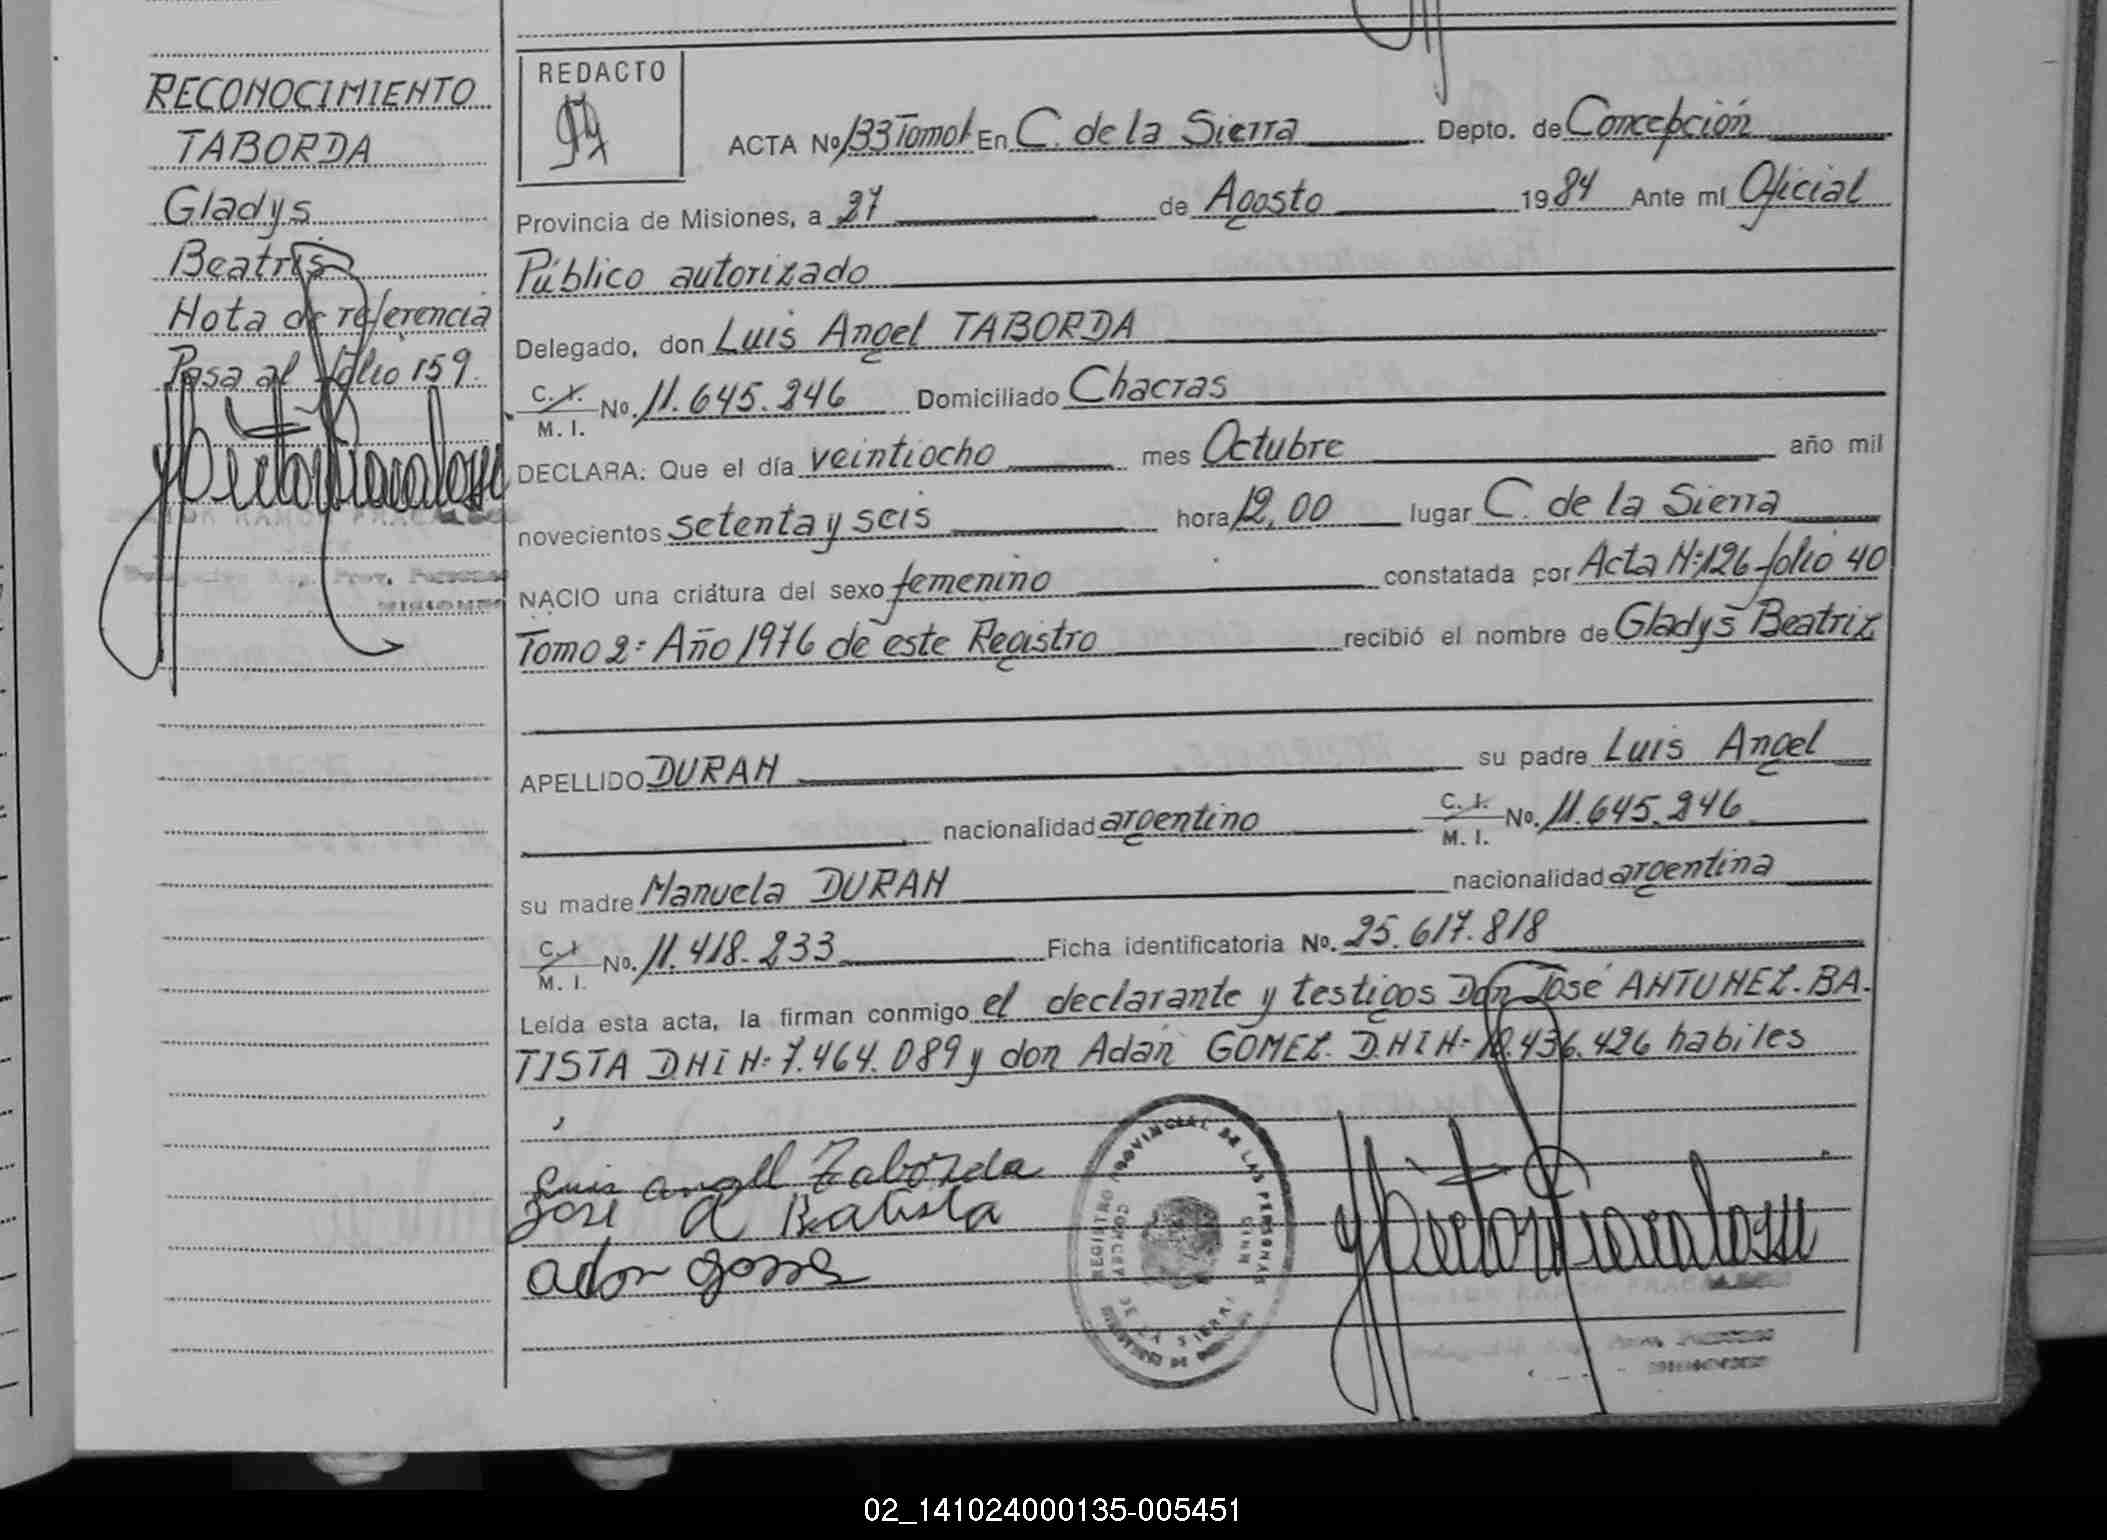 RECONOCIMIENTO
TABORDA
Gladys
Beatris
Nota de referencia
Pasa al folio 159.
REDACTO
ACTA No 133 Tomo 1 En C. de la Sierra Depto. de Concepción
Provincia de Misiones, a 27 de Agosto 1984 Ante mí Oficial
Público autorizado
Delegado, don Luis Angel TABORDA
C. I. M. I. No. 11.645.246 Domiciliado Chacras
DECLARA: Que el día veintiocho mes Octubre año mil
novecientos setenta y seis hora 12,00 lugar C. de la Sierra
NACIO una criatura del sexo femenino constatada por Acta N: 126 folio 40
Tomo 2: Año 1976 de este Registro recibió el nombre de Gladys Beatriz
APELLIDO DURAN su padre Luis Angel
nacionalidad argentino C. I. M. I. No. 11.645.246
su madre Manuela DURAN nacionalidad argentina
C. I. M. I. No. 11.418.233 Ficha identificatoria No. 25.617.818
Leída esta acta, la firman conmigo el declarante y testigos Don José ANTUNEZ.BA.
TISTA DNI N: 7.464.089 y don Adan GOMEZ. D.N.I N: 436.426 habiles
Luis angel Taborda
José A Batista
adan gomes
REGISTRO PROVINCIAL DE LAS PERSONAS
DE LA SIERRA
02_141024000135-005451